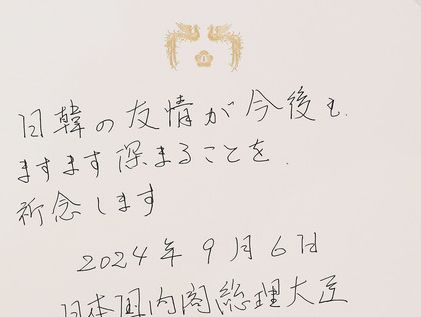 日韓の友情が今後も
ますます深まることを
祈念します
2024年9月6日
日本国内閣総理大臣